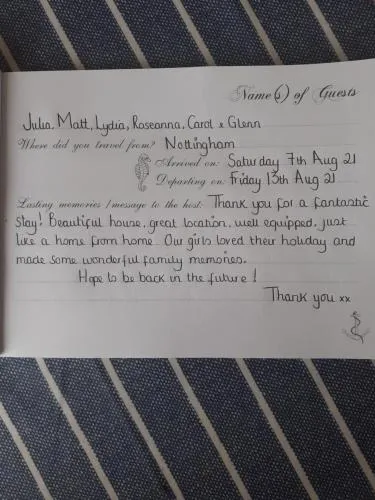 Name(s) of Guests
Julia, Matt, Lydia, Roseanna, Carol x Glenn
Where did you travel from? Nottingham
Arrived on: Saturday 7th Aug 21
Departing on: Friday 13th Aug 21
Lasting memories / message to the host: Thank you for a fantastic
stay! Beautiful house, great location, well equipped, just
like a home from home. Our girls loved their holiday and
made some wonderful family memories.
Hope to be back in the future!
Thank you xx